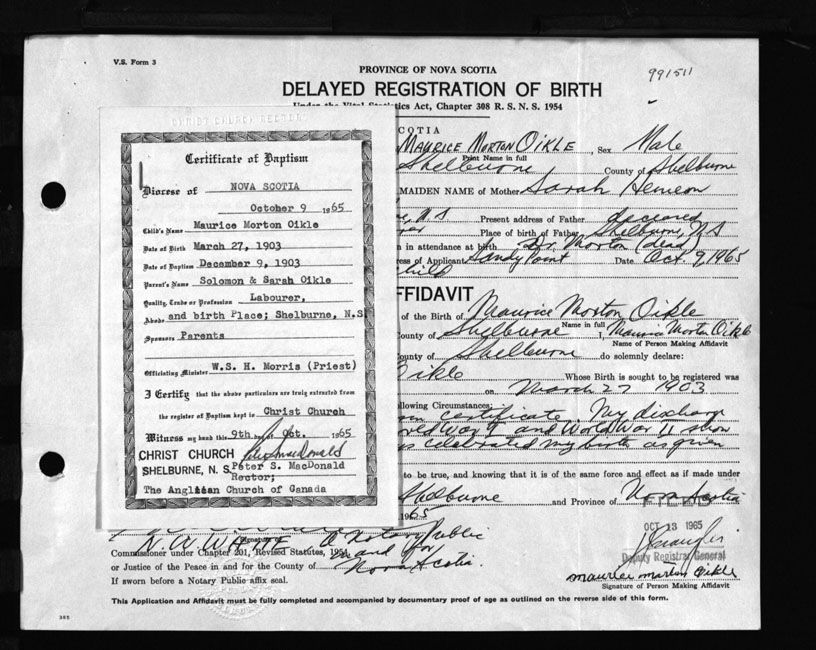 V.S. Form 3
PROVINCE OF NOVA SCOTIA
991511
DELAYED REGISTRATION OF BIRTH
Under the Vital Statistics Act, Chapter 308 R. S. N. S. 1954
CHRIST CHURCH RECTORY
Certificate of Baptism
Diocese of NOVA SCOTIA
October 9 1965
Child's Name Maurice Morton Oikle
Date of Birth March 27, 1903
Date of Baptism December 9, 1903
Parent's Name Solomon & Sarah Oikle
Quality, Trade or Profession Labourer,
Abode and birth Place; Shelburne, N.S
Sponsors Parents
Officiating Minister W.S. H. Morris (Priest)
I Certify that the above particulars are truly extracted from
the register of Baptism kept in Christ Church
Witness my hand this 9th day of Oct. 1965
CHRIST CHURCH
SHELBURNE, N. S. Peter S. MacDonald
Rector;
The Anglican Church of Canada
COTIA
MAURICE MORTON OIKLE, Sex Male
Print Name in full
Shelburne County of Shelburne
MAIDEN NAME of Mother Sarah
N S Present address of Father deceased
Place of birth of Father Shelburne, N S
n in attendance at birth Dr. Morton (dead)
ess of Applicant Sandy Point Date Oct. 9, 1965
child
FFIDAVIT
of the Birth of Maurice Morton Oikle
Name in full
ounty of Shelburne I, Maurice Morton Oikle
Name of Person Making Affidavit
ounty of Shelburne do solemnly declare:
Oikle Whose Birth is sought to be registered was
on March 27 1903
ollowing Circumstances:
certificate. My discharge
World War I and World War II show
celebrated my birth as given
to be true, and knowing that it is of the same force and effect as if made under
Shelburne and Province of Nova Scotia
1965
FILED
OCT 13 1965
Deputy Registrar General
Signature
A Notary Public
Commissioner under Chapter 201, Revised Statutes, 1954 in and for
or Justice of the Peace in and for the County of Nova Scotia.
Maurice Morton Oikle
Signature of Person Making Affidavit
If sworn before a Notary Public affix seal.
This Application and Affidavit must be fully completed and accompanied by documentary proof of age as outlined on the reverse side of this form.